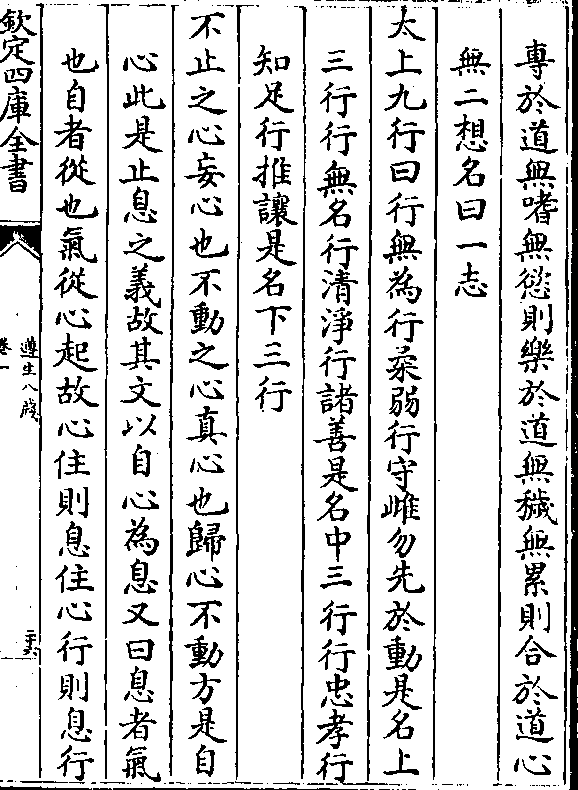 專於道無嗜無慾則樂於道無穢無累則合於道心
無二想名曰一志
太上九行曰行無為行柔弱行守雌勿先於動是名上
三行行無名行清淨行諸善是名中三行行忠孝行
知足行推讓是名下三行
不止之心妄心也不動之心真心也歸心不動方是自
心此是止息之義故其文以自心為息又曰息者氣
也自者從也氣從心起故心住則息住心行則息行
欽定四庫全書
遵生八牋
卷一
二十六